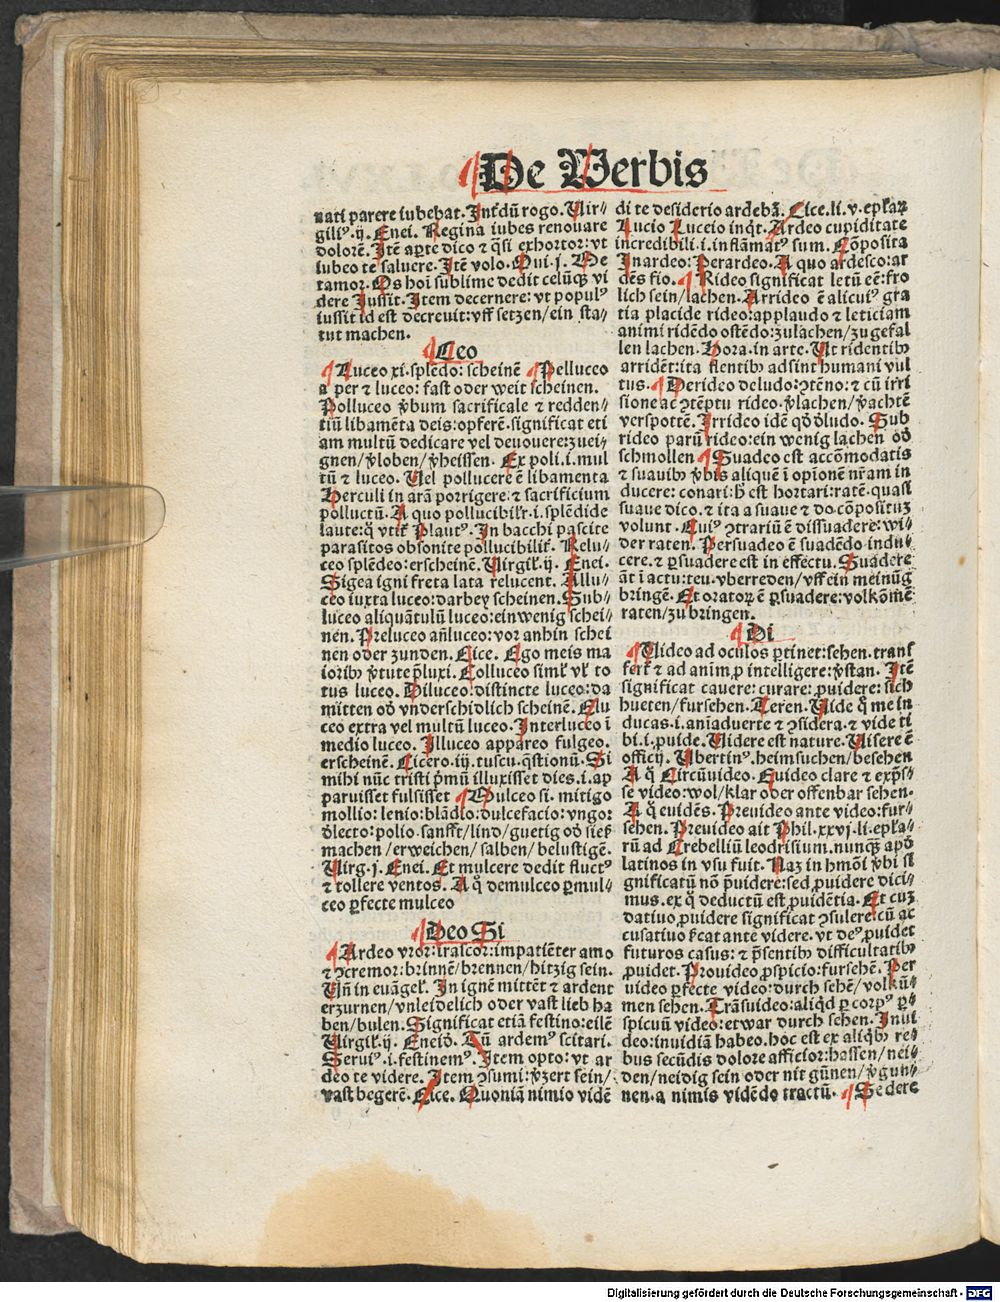 De Verbis
nati parere iubebat. Intdū rogo. Vir⸗
gilꝰ. ij. Enei. Regina iubes renouare
dolorē. Itē aꝑte dico ⁊ q̄si exhortor: vt
iubeo te saluere. Itē volo. Oui. j. Me
tamor. Os hoi sublime dedit celūqꝫ vi
dere Jussit. Item decernere: vt populꝰ
iussit id est decreuit: vff setzen/ein sta⸗
tut machen.
Ceo
Luceo xi. splēdo: scheinē Pelluceo
a per ⁊ luceo: fast oder weit scheinen.
Polluceo v̄bum sacrificale ⁊ redden⸗
tiū libamēta deis: opferē. significat eti
am multū dedicare vel deuouere: zuei⸗
gnen/v̄loben/v̄heissen. Ex poli. i. mul
tū ⁊ luceo. Vel pollucere ē libamenta
Herculi in arā porrigere: ⁊ sacrificium
polluctū. A quo pollucibilr̄. i. splēdide
laute: q̄ vtit̄ Plautꝰ. In bacchi pascite
parasitos obsonite pollucibilit̄. Relu⸗
ceo splēdeo: erscheinē. Virgil. ij. Enei.
Sigea igni freta lata relucent. Allu⸗
ceo iuxta luceo: darbey scheinen. Sub⸗
luceo aliquātulū luceo: ein wenig schei⸗
nen. Preluceo an̄luceo: vor anhin schei
nen oder zunden. Cice. Ego meis ma
iorib v̄tute p̄luxi. Colluceo siml̄ vl̄ to
tus luceo. Diluceo distincte luceo: da
mitten od̓ vnderschidlich scheinē. Elu
ceo extra vel multū luceo. Interluceo ī
medio luceo. Illuceo appareo fulgeo.
erscheinē. Cicero. iij. tuscu. q̄stionū. Si
mihi nūc tristi p̄mū illuxisset dies. i. ap
paruisset fulsisset Mulceo si. mitigo
mollio: lenio: blādio: dulcefacio: vngo:
d̓lecto: polio. sanfft/lind/guetig od̓ sieß
machen/erweichen/salben/belustigē.
Virg. j. Enei. Et mulcere dedit fluctꝰ
⁊ tollere ventos. A q̊ demulceo ꝑmul⸗
ceo ꝑfecte mulceo
Deo Si
Ardeo vror: irascor: impatiēter amo
⁊ ꝯcremor: brinnē/brennen/hitzig sein.
Vn̄ in euāgel̄. In ignē mittēt ⁊ ardent
erzurnen/vnleidelich oder vast lieb ha
ben/bulen. Significat etiā festino: eilē
Virgil̄. ij. Eneid̓. Tū ardemꝰ scitari.
Seruiꝰ. i. festinemꝰ. Item opto: vt ar
deo te videre. Item ꝯsumi: v̄zert sein/
vast begerē. Cice. Quoniā nimio vidē
di te desiderio ardebā. Cice. li. v. epl̄ar
Lucio Luceio inqt̄. Ardeo cupiditate
incredibili. i. inflāmatꝰ sum. Cōposita
Inardeo: Perardeo. A quo ardesco: ar
dēs fio. Rideo significat letū eē: fro
lich sein/lachen. Arrideo ē alicuiꝰ gra
tia placide rideo: applaudo ⁊ leticiam
animi ridēdo ostēdo: zulachen/zu gefal
len lachen. Hora. in arte. Vt ridentib
arridēt: ita flentib adsint humani vul
tus. Derideo deludo: ꝯtēno: ⁊ cū irri
sione ac ꝯtēptu rideo. v̄lachen/v̄achtē
verspottē. Irrideo idē qd̓ d̓ludo. Sub
rideo parū rideo: ein wenig lachen od̓
schmollen Suadeo est accōmodatis
⁊ suauib v̄bis aliquē ī opīonē nr̄am in
ducere: conari: h̄ est hortari: ratē. quasi
suaue dico. ⁊ ita a suaue ⁊ do cōpositum
volunt. Cuiꝰ ꝯtrariū ē dissuadere: wi⸗
der raten. Persuadeo ē suadēdo indu⸗
cere. ⁊ ꝑsuadere est in effectu. Suadere
āt ī actu: teu. vberreden/vff ein meinūg
bringē. Et oratorꝫ ē ꝑsuadere: volkōmē
raten/zu bringen.
Di
Video ad oculos ꝑtinet: sehen. transf
fert̄ ⁊ ad anim̄ ꝓ intelligere: v̄stan. Itē
significat cauere: curare: ꝓuidere: sich
hueten/fursehen. Teren. Vide q̄ me in
ducas. i. aniaduerte ⁊ ꝯsidera. ⁊ vide ti
bi. i. ꝓuide. Videre est nature. Visere ē
officij. Vbertinꝰ. heimsuchen/besehen
A q̊ Circūuideo. Euideo clare ⁊ exp̄s⸗
se video: wol/klar oder offenbar sehen.
A q̊ euidēs. Preuideo ante video: fur⸗
sehen. Preuideo ait Phil. xxvj. li. epl̄a⸗
rū ad Crebelliū leodrisium. nunqꝫ apd̓
latinos in vsu fuit. Naꝫ in hmōi v̄bi si
gnificatū nō p̄uidere: sed ꝓuidere dici⸗
mus. ex q̊ deductū est ꝓuidētia. Et cuꝫ
datiuo ꝓuidere significat ꝯsulere: cū ac
cusatiuo f̄cat ante videre. vt deꝰ ꝓuidet
futuros casus: ⁊ p̄sentib difficultatib
ꝓuidet. Prouideo ꝓspicio: fursehē. Per
uideo ꝑfecte video: durch sehē/volkū⸗
men sehen. Trāsuideo: aliqd̓ ꝑ corpꝰ ꝑ⸗
spicuū video: etwar durch sehen. Inui
deo: inuidiā habeo. hoc est ex aliqb re⸗
bus secūdis dolore afficior: hassen/nei⸗
den/neidig sein oder nit gūnen/v̄gun⸗
nen. a nimis vidēdo tractū. Sedere
Digitalisierung gefördert durch die Deutsche Forschungsgemeinschaft - DFG